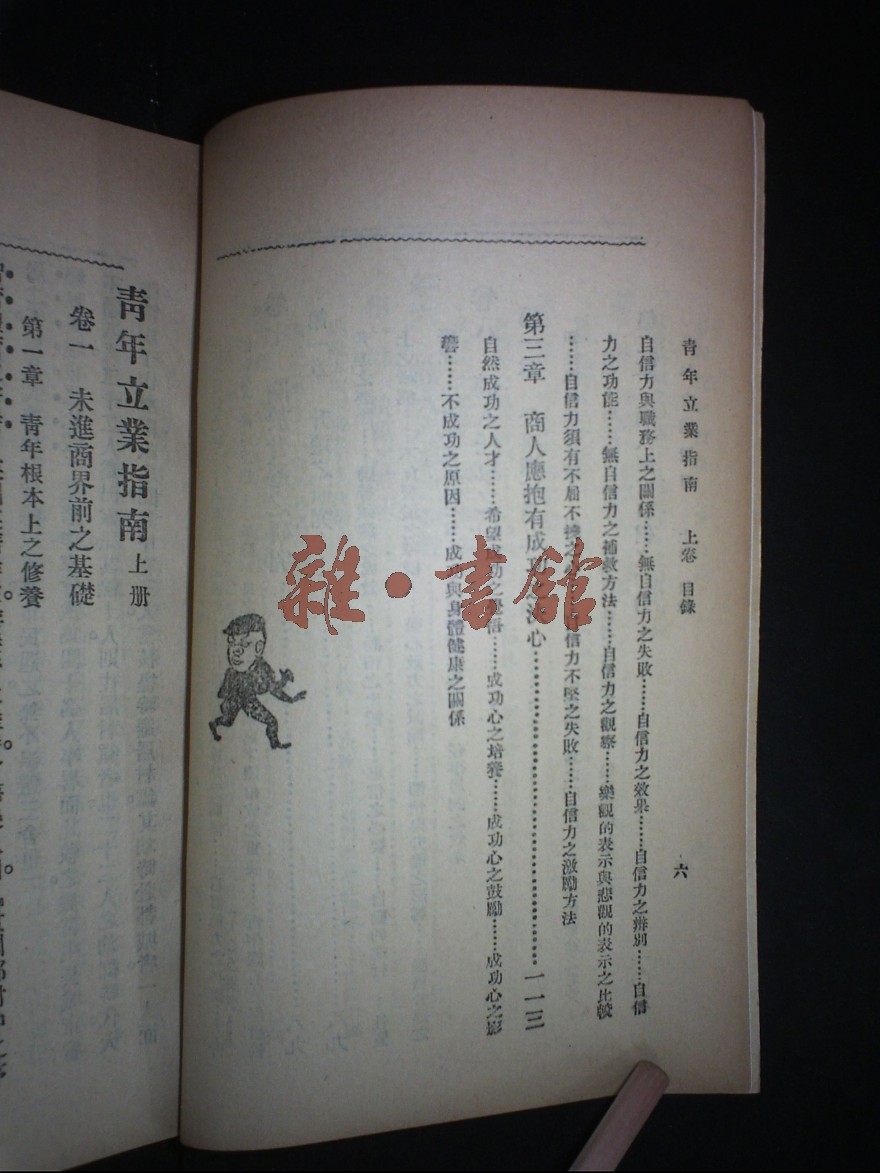 青年立業指南　上卷　目錄
六
自信力與職務上之關係……無自信力之失敗……自信力之效果……自信力之辨別……自信
力之功能……無自信力之補救方法……自信力之觀察……樂觀的表示與悲觀的表示之比較
……自信力須有不屈不撓之　信力不堅之失敗……自信力之激勵方法
第三章　商人應抱有成功　決心……一一三
自然成功之人才……希望成功之　悟……成功心之培養……成功心之鼓勵……成功心之影
響……不成功之原因……成功與身體健康之關係
青年立業指南 上册
卷一　未進商界前之基礎
第一章　青年根本上之修養
雜·書館